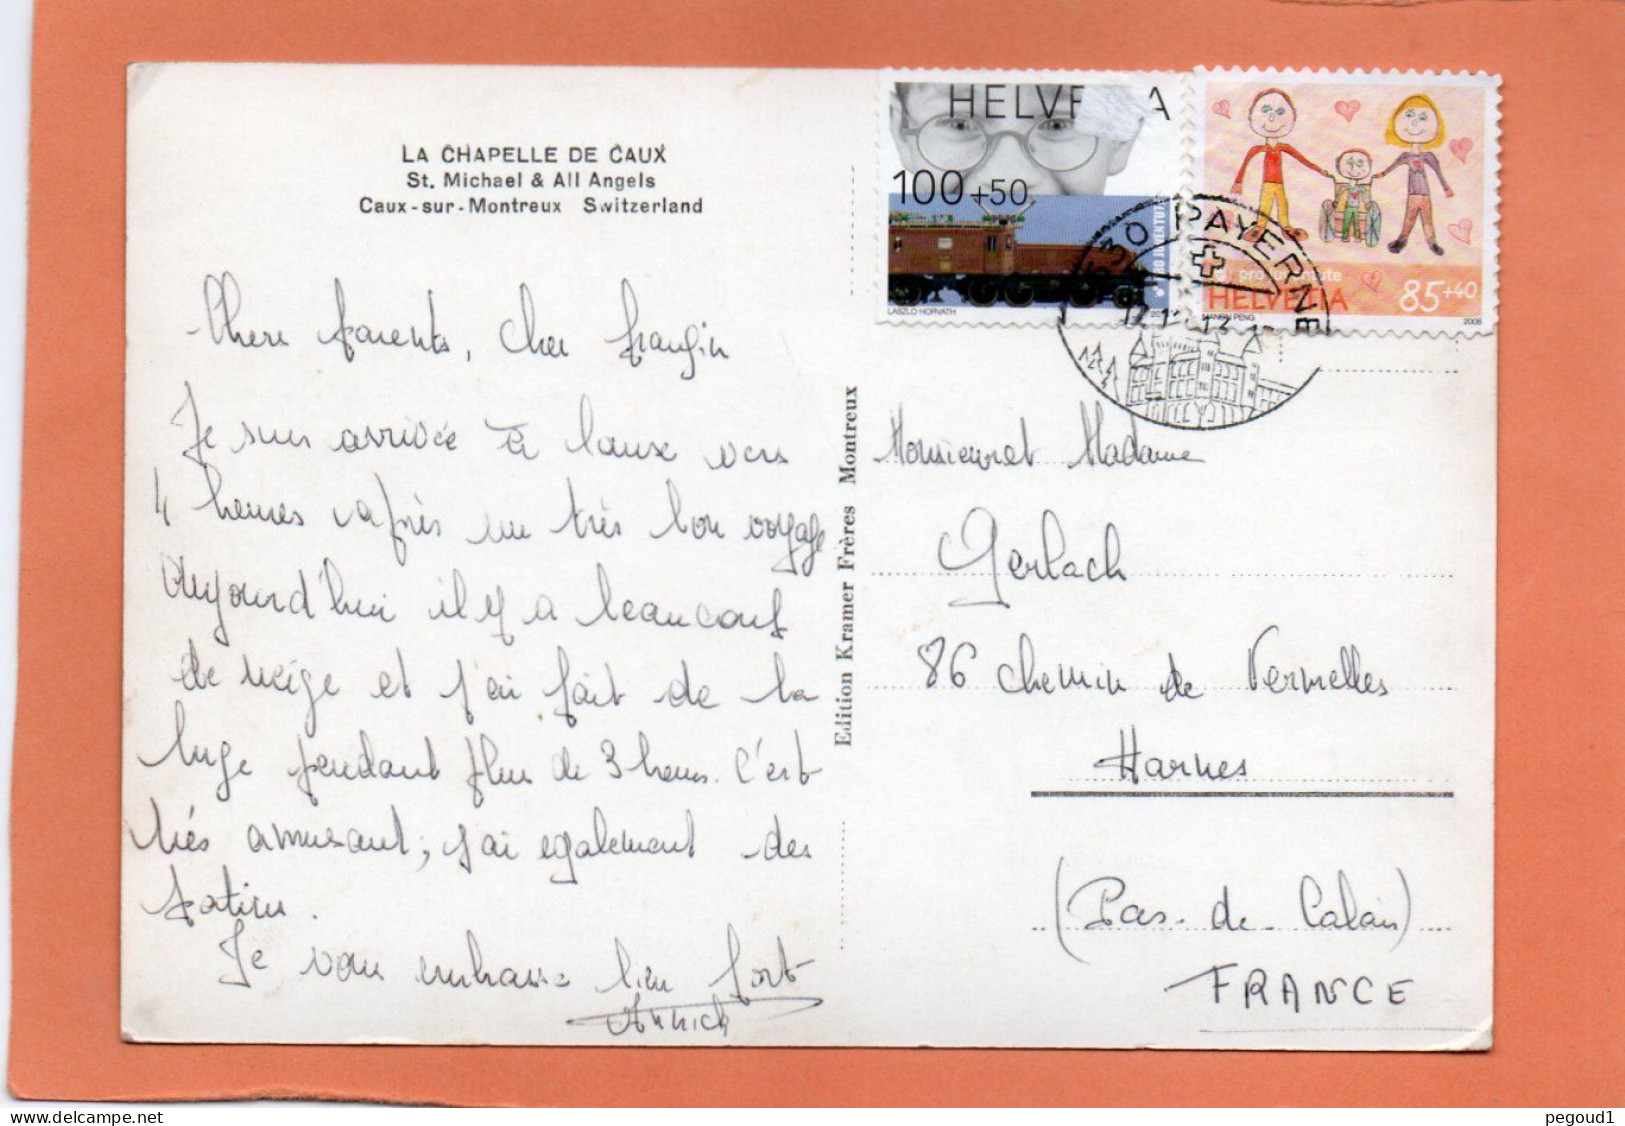 LA CHAPELLE DE CAUX
St. Michael & All Angels
Caux-sur-Montreux Switzerland
Chers parents, cher frangin
Je suis arrivée à Caux vers
4 heures après un très bon voyage
Aujourd'hui il y a beaucoup
de neige et j'ai fait de la
luge pendant plus de 3 heures. C'est
très amusant, j'ai egalement des
patins.
Je vous embrasse bien fort
Annick
Edition Kramer Frères Montreux
HELVETIA
100+50
PRO JUVENTUTE
LASZLO HORVATH
pro juventute
HELVETIA 85+40
MANRU PENG
2008
1530 PAYERNE
Monsieur et Madame
Gerlach
86 chemin de Vermelles
Harnes
(Pas-de-Calais)
FRANCE
www.delcampe.net
pegoud1